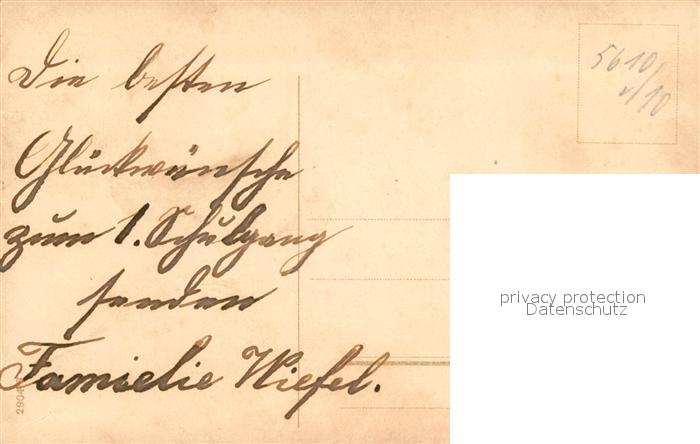 Die besten
Glückwünsche
zum 1. Schulgang
senden
Famielie Wiefel.
5610/
10
privacy protection
Datenschutz
2904